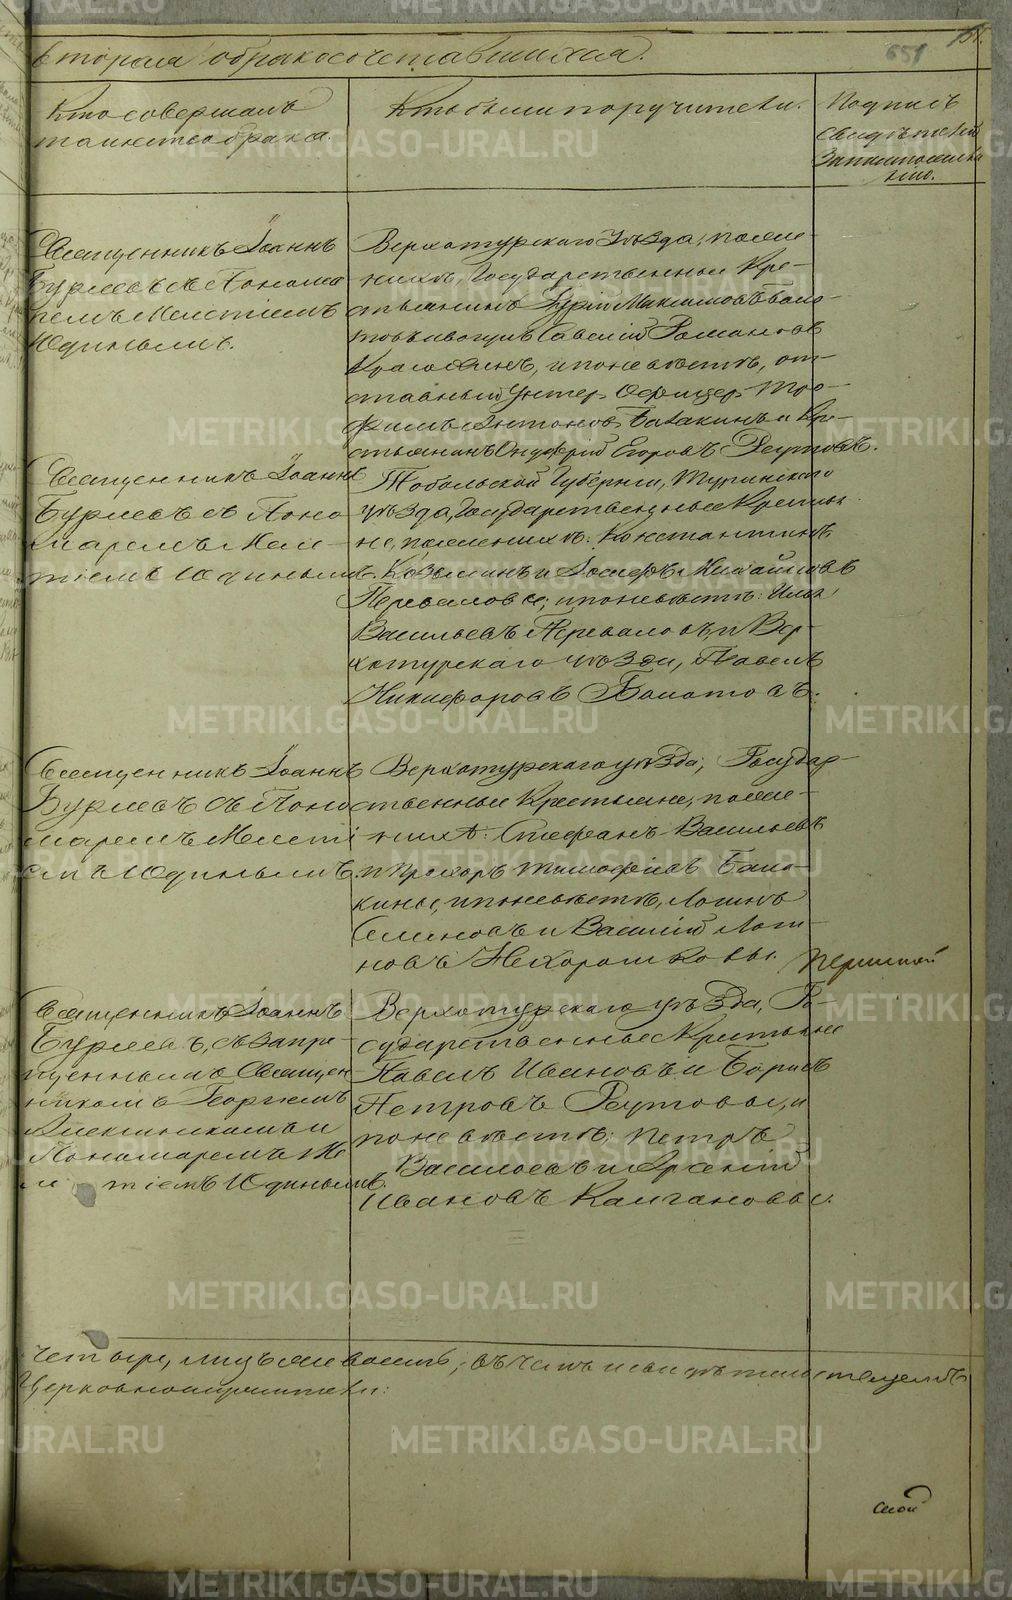 вторая о бракосочетавшихся.
651
Кто совершалъ
таинство брака.
Кто были поручители.
Подпись
свидѣтелей
записи по желанію.
Священникъ Іоаннъ
Бурмевъ съ Понома
ремъ Мелетіемъ
Юдинымъ.
Верхотурскаго уѣзда, по жениху,
Государственные Кре-
стьянинъ Юрій Максимовъ Болотовъ
и вотчимъ Савелій Романовъ
и по невѣстѣ, от-
ставный Унтер-Офицеръ Тро-
фимъ Антоновъ Балакинъ и Кре-
стьянинъ Онуфрій Егоровъ Реутовъ.
Священникъ Іоаннъ
Бурмевъ съ Поно
маремъ Меле-
тіемъ Юдинымъ.
Тобольской Губерніи, Туринскаго
уѣзда, Государственные Крестья
не, по женихѣ: Константинъ
Козьминъ и Іосифъ Михайловъ
Переваловы; и по невѣстѣ: Илья
Васильевъ Переваловъ, и Вер-
хотурскаго уѣзда, Павелъ
Никифоровъ Болотовъ.
Священникъ Іоаннъ
Бурмевъ съ Поно
маремъ Мелеті
емъ Юдинымъ.
Верхотурскаго уѣзда, Государ-
ственные Крестьяне, по же-
нихѣ: Стефанъ Васильевъ
и Прохоръ Тимофѣевъ Бала-
кины, и по невѣстѣ, Логинъ
Семеновъ и Василій Логи-
новъ Нехорошковы.
Пермской
Священникъ Іоаннъ
Бурмевъ, съ запре-
щеннымъ Священ
никомъ Георгіемъ
и
Пономаремъ Ме
ле тіемъ Юдинымъ.
Верхотурскаго уѣзда, Го-
сударственные Крестьяне
Павелъ Ивановъ и Борисъ
Петровъ Реутовы, и
по невѣстѣ; Петръ
Васильевъ и Арсеній
Ивановъ Калгановы.
четыре, лицъ восемь; въ чемъ и свидѣтельствуемъ
Церковнослужители: